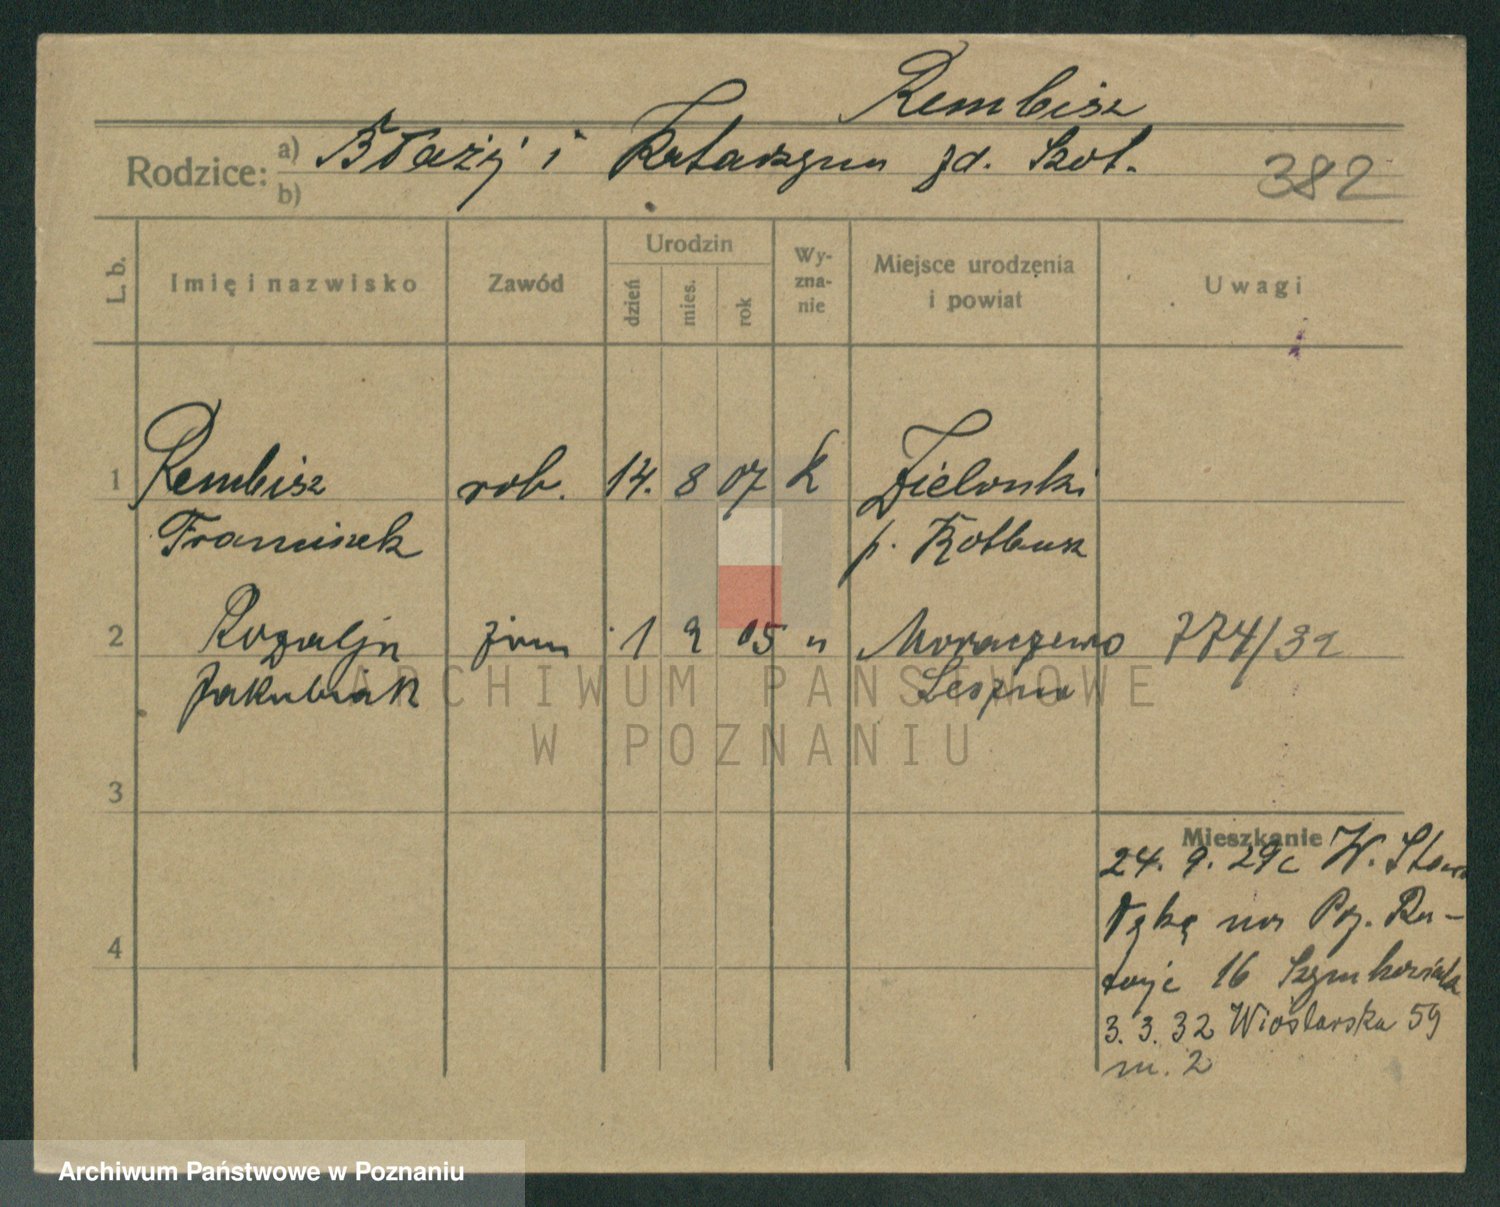 Rembisz
Rodzice: a) Błażej i Katarzyna zd. Szot.
b)
382
L. b.
Imię i nazwisko
Zawód
Urodzin
dzień
mies.
rok
Wy-
zna-
nie
Miejsce urodzenia
i powiat
Uwagi
1 Rembisz rob. 14. 8 07 k Zielonki
Franciszek p. Kolbusz
2 Rozalja żona 1 9 05 " Moraczewo 774/32
Jakubiak Leszno
3
4
Mieszkanie
24. 9. 29 W.
na Ra-
taje 16 Szymkowiak
3. 3. 32 Wioślarska 59
m. 2
ARCHIWUM PAŃSTWOWE
W POZNANIU
Archiwum Państwowe w Poznaniu